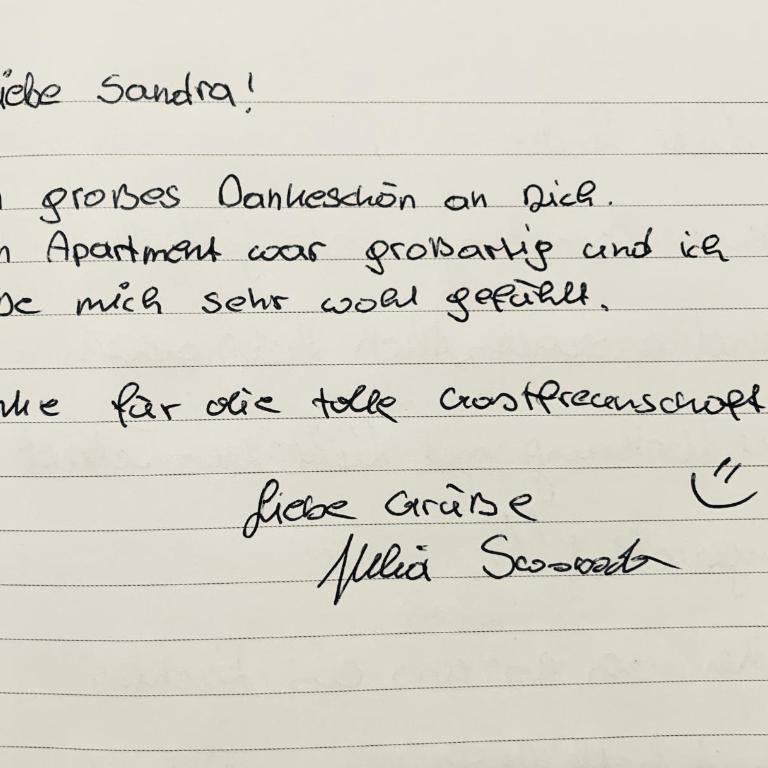 iebe Sandra!
großes Dankeschön an Dich.
n Apartment war großartig und ich
be mich sehr wohl gefühlt.
nke für die tolle Gastfreunschaft
Liebe Grüße
Julia